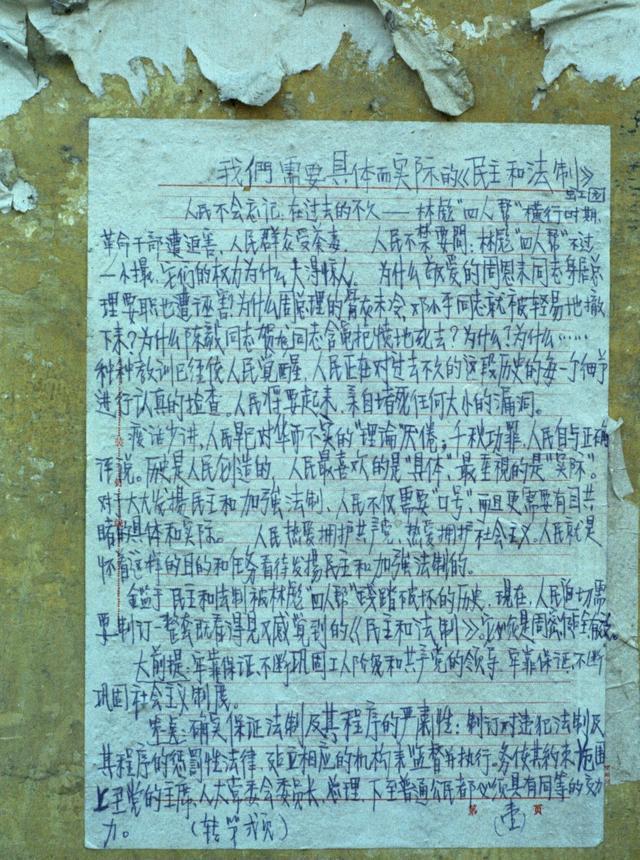 我們需要具体而实际的《民主和法制》
人民不会忘记,在过去的不久——林彪"四人帮"横行时期,
革命干部遭迫害,人民群众受荼毒。人民不禁要問:林彪"四人帮"不过
一小撮,它们的权力为什么大得惊人。为什么敬爱的周恩来同志身居总
理要职也遭诬害?为什么周总理的骨灰未冷,邓小平同志就被轻易地撤
下来?为什么陈毅同志贺龙同志含冤抱恨地死去?为什么?为什么……
种种教训已经使人民觉醒,人民正在对过去不久的这段历史的每一个细节
进行认真的检查。人民将要起来,亲自堵死任何大小的漏洞。
废话少讲,人民早已对华而不实的"理論"厌倦;千秋功罪,人民自与正确
评说。历史是人民创造的,人民最喜欢的是"具体",最重視的是"实际"。
对于大大发揚民主和加強法制,人民不仅需要"口号",而且更需要有目共
睹的具体和实际。人民热爱拥护共产党,热爱拥护社会主义,人民就是
怀着这样的目的和任务看待发揚民主和加強法制的。
鑑于民主和法制被林彪"四人帮"践踏破坏的历史,現在,人民迫切需
要制订一整套既看得見又感覚到的《民主和法制》,它必须是周密健全
大前提:牢靠保证,不断巩固工人阶级和共产党的领导,牢靠保证,不断
巩固社会主义制度。
确实保证法制及其程序的严肃性:制订对违犯法制及
其程序的惩罚性法律,建立相应的机构来监督并执行。务使其约束范围
上至党的主席、人大常委会委员长、总理,下至普通公民都必须具有同等的效
力。 (转第弍页)
第 页
(壹)